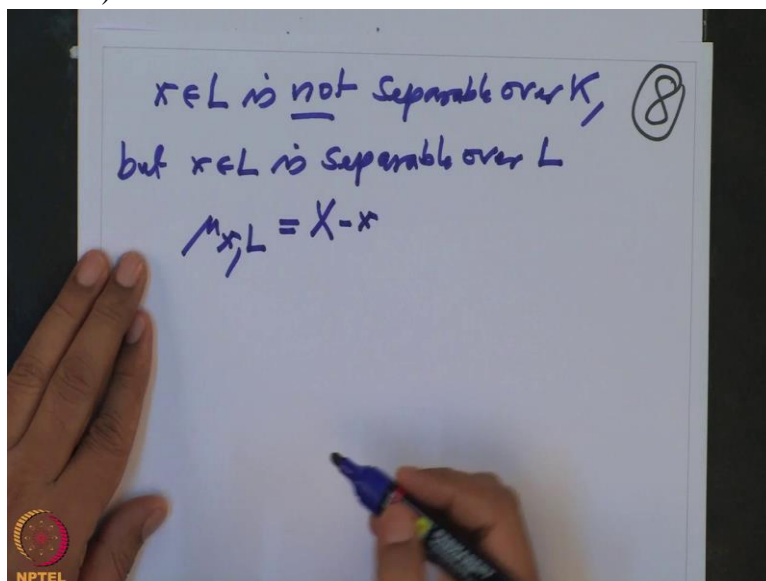 x ∈ L is not separable over K,
⑧
but x ∈ L is separable over L
μx,L = X - x
NPTEL